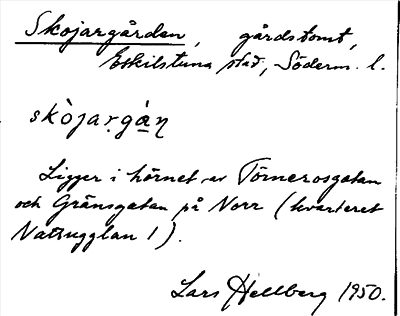 Skojargården, gårdstomt,
Eskilstuna stad, Söderm. l.
skòjaṛgá̱ṇ
Ligger i hörnet av Törnerosgatan
och Gränsgatan på Norr (kvarteret
Nattugglan 1).
Lars Hellberg 1950.